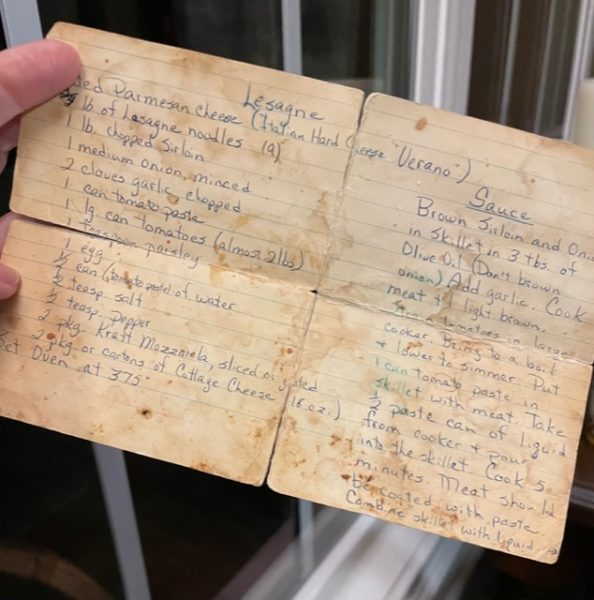 Lesagne
ded Parmesan cheese (Italian Hard Cheese "Verano")
lb. of Lasagne noodles (9)
1 lb. chopped Sirloin
1 medium onion, minced
2 cloves garlic chopped
1 can tomato paste
1 lg. can tomatoes (almost 2 lbs)
1 parsley
1 egg
1/2 can (tomato paste) of water
1/2 teasp salt
1/2 teasp. Pepper
2 pkg. Kraft Mozzarela, sliced or
2 pkg or cartons of Cottage Cheese 16 oz.)
Set Oven at 375°
Sauce
Brown Sirloin and Oni
in Skillet in 3 tbs. of
Olive Oil (Don't brown
onion) Add garlic. Cook
meat till light brown.
tomatoes in large
cooker. Bring to a boil
+ lower to simmer. Put
1 can tomato paste in
skillet with meat Take
1/2 paste can of liquid
from cooker + pour
into the skillet. Cook 5
minutes. Meat should
be coated with paste.
Combine skillet with liquid